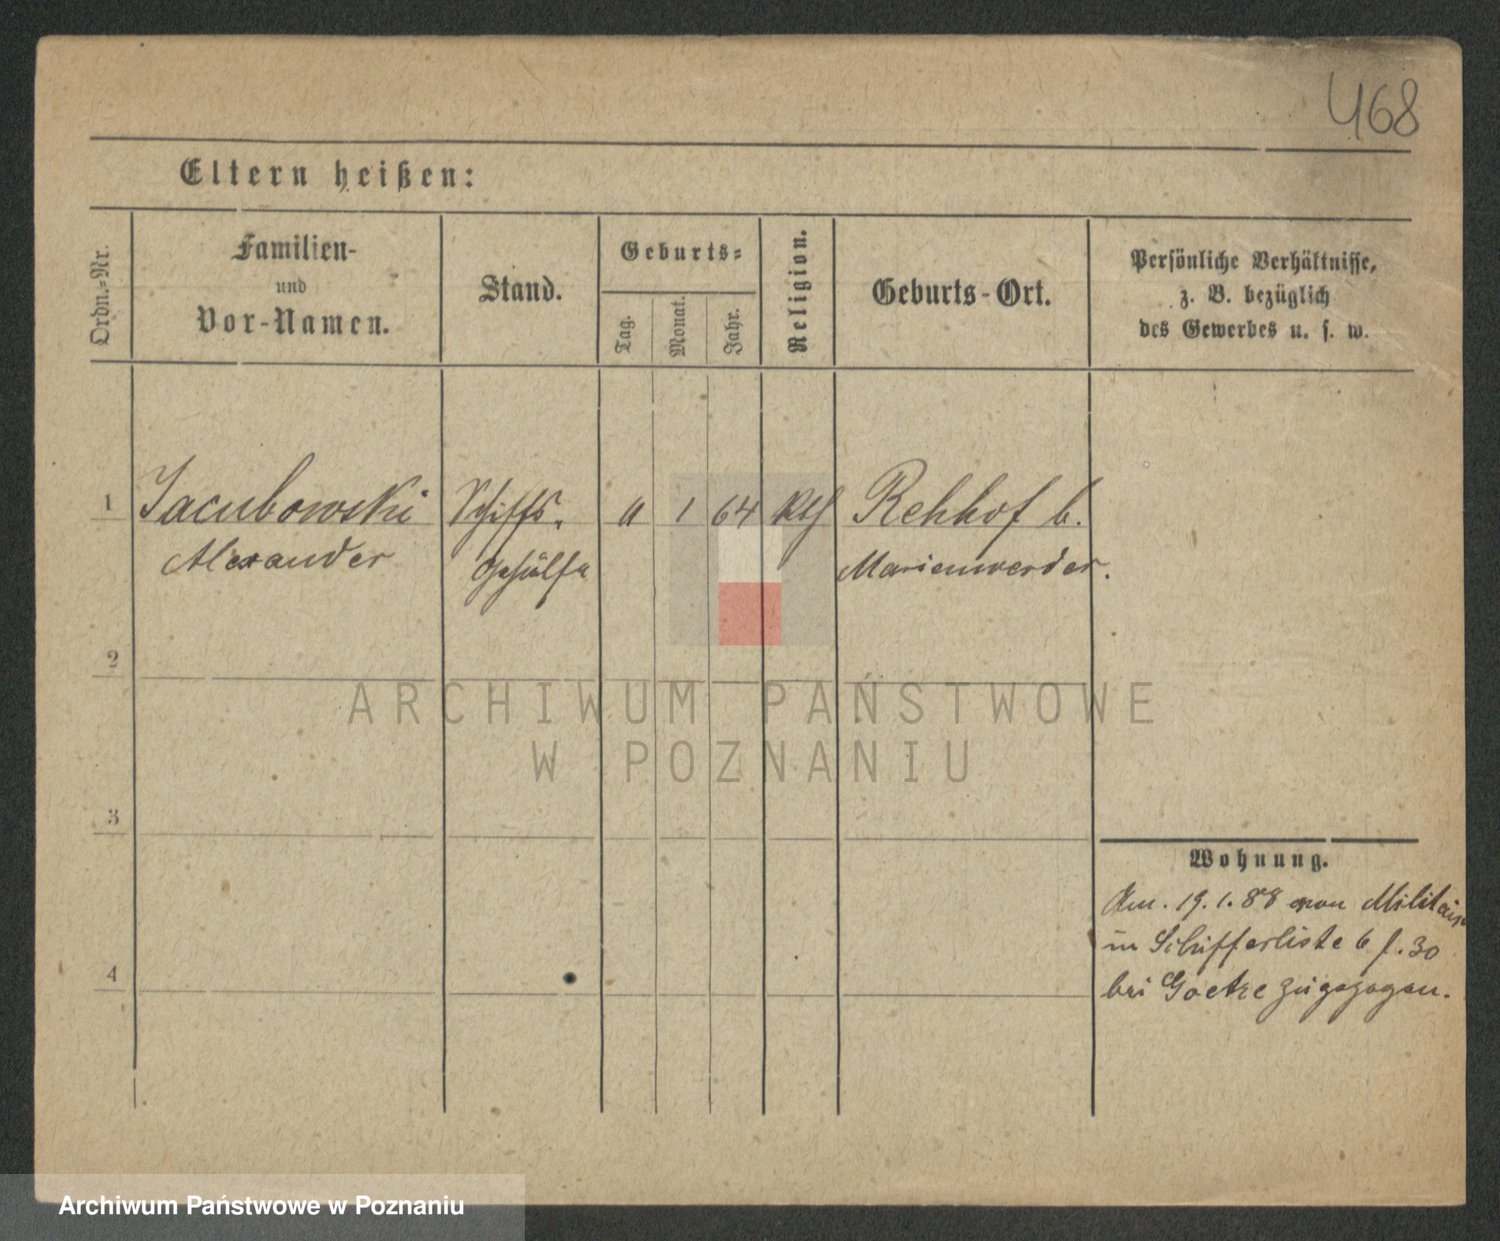 468
Eltern heißen:
Ordn.-Nr.
Familien-
und
Vor-Namen.
Stand.
Geburts-
Tag.
Monat.
Jahr.
Religion.
Geburts-Ort.
Persönliche Verhältnisse,
z. B. bezüglich
des Gewerbes u. s. w.
1 Jacubowski Schiffs- 1 64 Kth Rehhof b.
Alexander Gehülfe Marienwerder.
2
3
4
Wohnung.
Am. 19. 1. 88 von Militair
in Schifferliste b f. 30
bei Goetze zugezogen.
ARCHIWUM PAŃSTWOWE
W POZNANIU
Archiwum Państwowe w Poznaniu